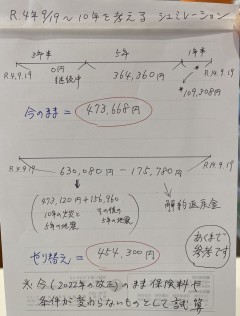 R.4年9/19～10年を考える シュミレーション
3年半 5年 1年半
0円 継続中 364,360円
R.4.9.19 R.14.9.19
109,308円
今のまま = 473,668円
R.4.9.19 R.14.9.19
630,080円 − 175,780円
473,120円 + 156,960
10年の火災と 5年の地震
その後の 5年の地震
解約返戻金
やり替え = 454,300円
あくまで 参考です
※今(2022年の改正)のまま保険料や
条件が変わらないものとして試算